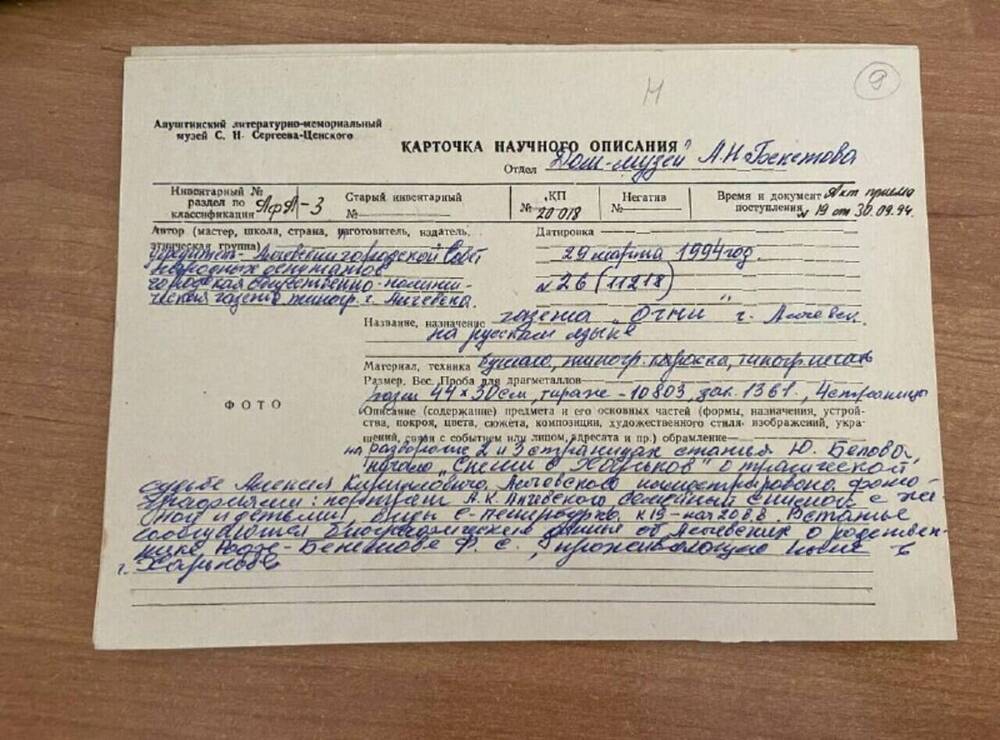 Н
9
Алуштинский литературно-мемориальный
музей С. Н. Сергеева-Ценского
КАРТОЧКА НАУЧНОГО ОПИСАНИЯ
Отдел "Дом-музей А.Н.Бекетова
Инвентарный №
раздел по
классификации АфА-3
Старый инвентарный
№
КП
№ 20018
Негатив
№
Время и документ Акт приема
поступления № 19 от 30.09.94.
Автор (мастер, школа, страна, изготовитель, издатель,
этническая группа)
учредитель - Алчевский городской Совет
народных депутатов
городская общественно-полити-
ческая газета типогр. г. Алчевска.
Датировка
29 марта 1994 год.
№ 26 (11218)
Название, назначение газета "Огни" г. Алчевск.
на русском языке
Материал, техника бумага, типогр. краска, типогр. печать
Размер. Вес. Проба для драгметаллов
разм 44×30 см, тираж - 10803, зак. 1361., 4 страницы
ФОТО
Описание (содержание) предмета и его основных частей (формы, назначения, устрой-
ства, покроя, цвета, сюжета, композиции, художественного стиля изображений, укра-
шений, связи с событием или лицом, адресата и пр.) обрамление
на развороте 2 и 3 страницах статья Ю. Белова,
начало " с Харьков" о трагической
судьбе Алексея Кирилловича Алчевского иллюстрирована фото-
графиями: портрет А.К. Алчевского семейный снимок с же-
ной и детьми, виды с-петербурга к. 19 - нач 20 в.в. В статье
сообщаются биографические об Алчевских о родствен-
нике Бенешове Ф. С., проживающем ныне в
г. Харькове